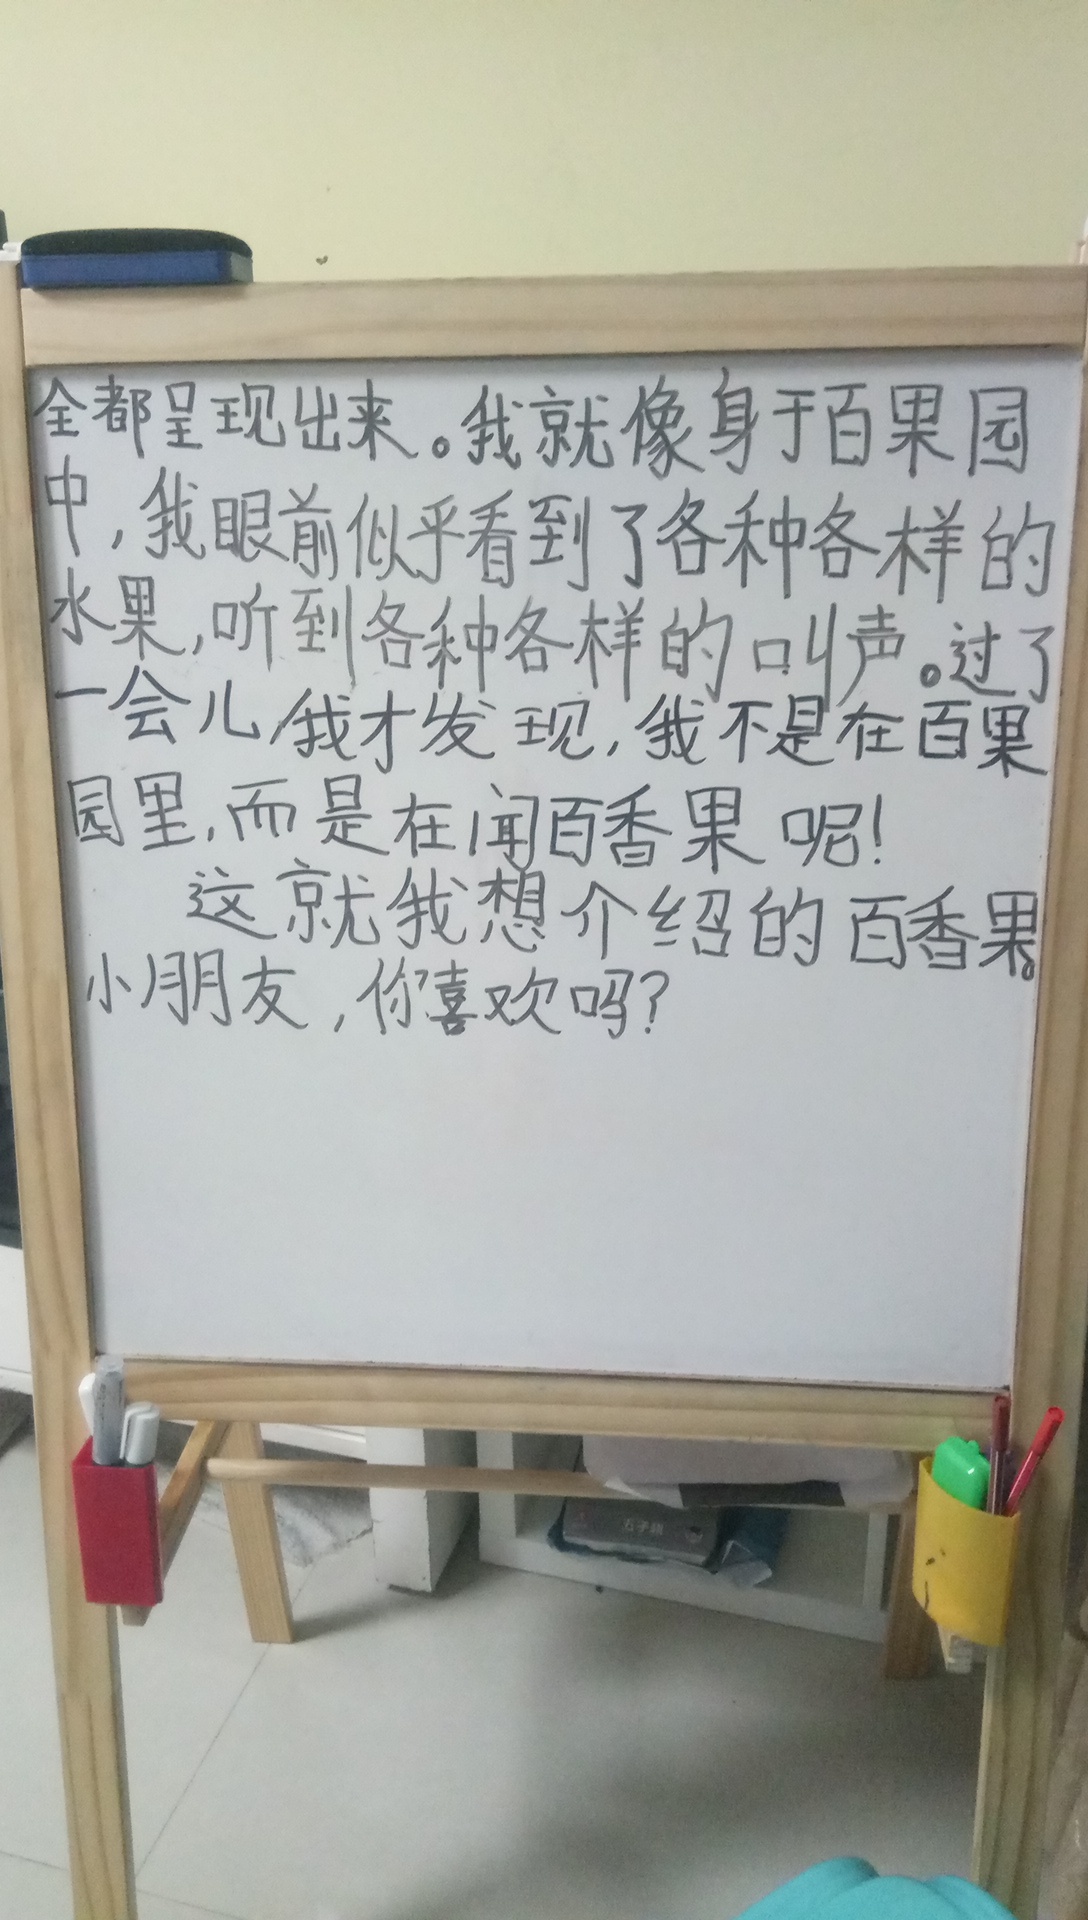 全都呈现出来。我就像身于百果园
中,我眼前似乎看到了各种各样的
水果,听到各种各样的叫声。过了
一会儿,我才发现,我不是在百果
园里,而是在闻百香果呢!
这就我想介绍的百香果。
小朋友,你喜欢吗?
五子棋